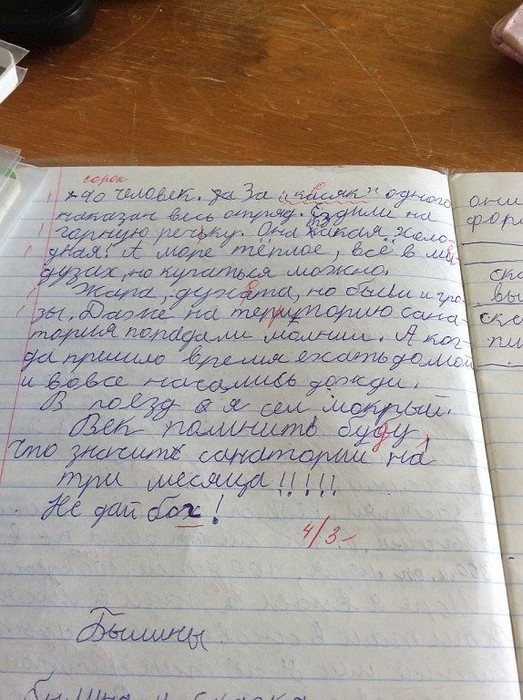 сорок
40 человек. За "касяк" одного
наказан весь отряд. Ездили на
горную речьку. Она какая холо-
дная! А море тёплое, всё в ме
дузах, но купаться можно.
Жара, духата, но были и гро-
зы. Даже на територию сана-
тория попадали молнии. А ког-
да пришло время ехать домой
и вовсе начались дожди.
В поезд я сел мокрый.
Век помнить буду,
что значить санаторий на
три месяца!!!!!
Не дай бох!
4/3-
Былины
былина и сказка
они
фор
ско
вы
ске
пи